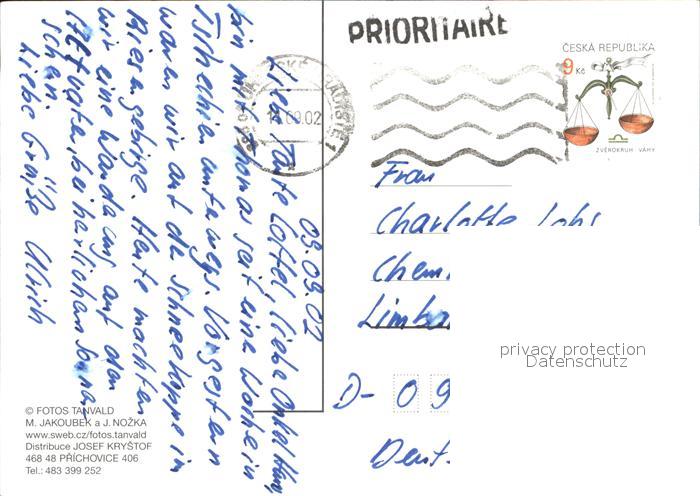 PRIORITAIRE
ČESKÁ REPUBLIKA
9 Kč
ZVĚROKRUH VÁHY
09.02
03.09.02
Liebe Tante Lottel, liebe
bin mit Thomas seit eine Woche in
Tschechien unterwegs. Vorgestern
waren wir auf de Schneekoppe in
Riesengebirge. Heute machten
wir eine Wanderung auf den
bei herrlichen Sonnen
schein
Liebe Grüße Ulrich
Frau
Charlotte
Chem
Limba
D- 09
Deut
privacy protection
Datenschutz
© FOTOS TANVALD
M. JAKOUBEK a J. NOŽKA
www.sweb.cz/fotos.tanvald
Distribuce JOSEF KRYŠTOF
468 48 PŘÍCHOVICE 406
Tel.: 483 399 252